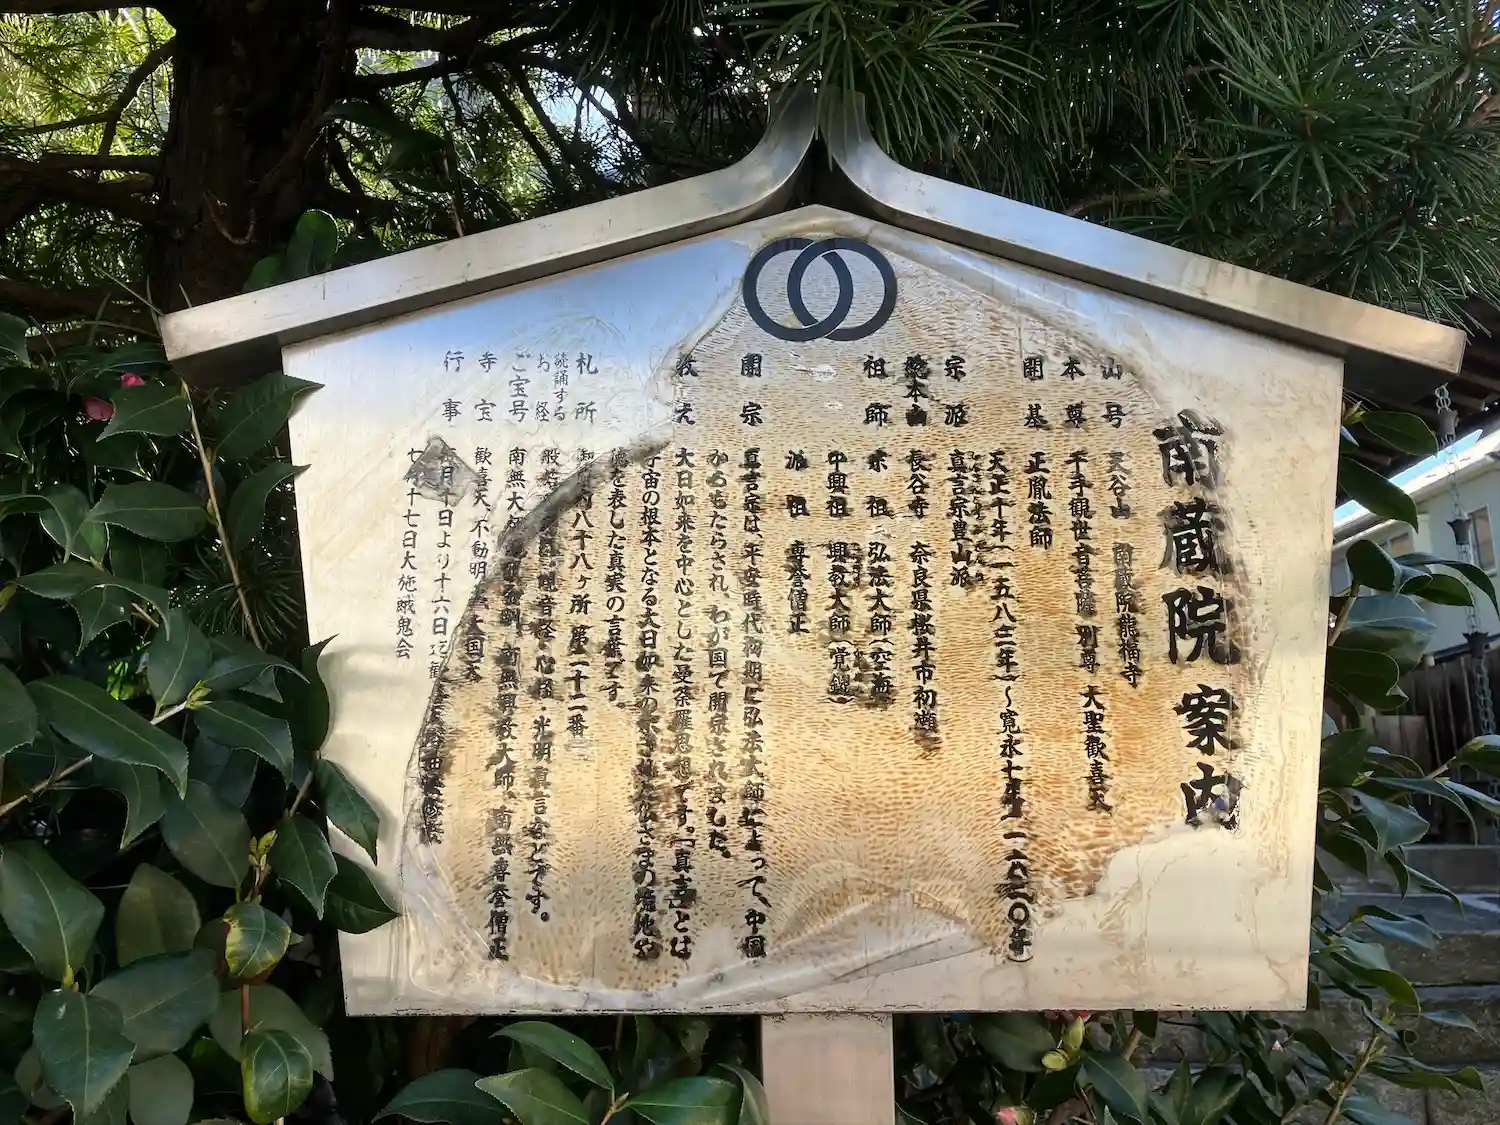 南蔵院案内
山号 天谷山 南蔵院龍福寺
本尊 千手観世音菩薩 別尊 大聖歓喜天
開基 正胤法師
天正十年(一五八二年)~寛永七年(一六三〇年)
宗派 真言宗豊山派
総本山 長谷寺 奈良県桜井市初瀬
祖師 宗祖 弘法大師(空海)
中興祖 興教大師(覚鑁)
派祖 専誉僧正
開宗 真言宗は、平安時代初期に弘法大師によって、中国
からもたらされ、わが国で開宗されました。
教え 大日如来を中心とした曼荼羅思想です。「真言」とは
宇宙の根本となる大日如来の
徳を表した真実の言葉です。
札所 八十八ヶ所 第二十二番
読誦する
お経 観音経・心経・光明真言などです。
ご宝号 南無大師遍照金剛、南無興教大師、南無専誉僧正
寺宝 歓喜天 不動明王 大国天
行事 月十日より十六日迄
七月十七日大施餓鬼会